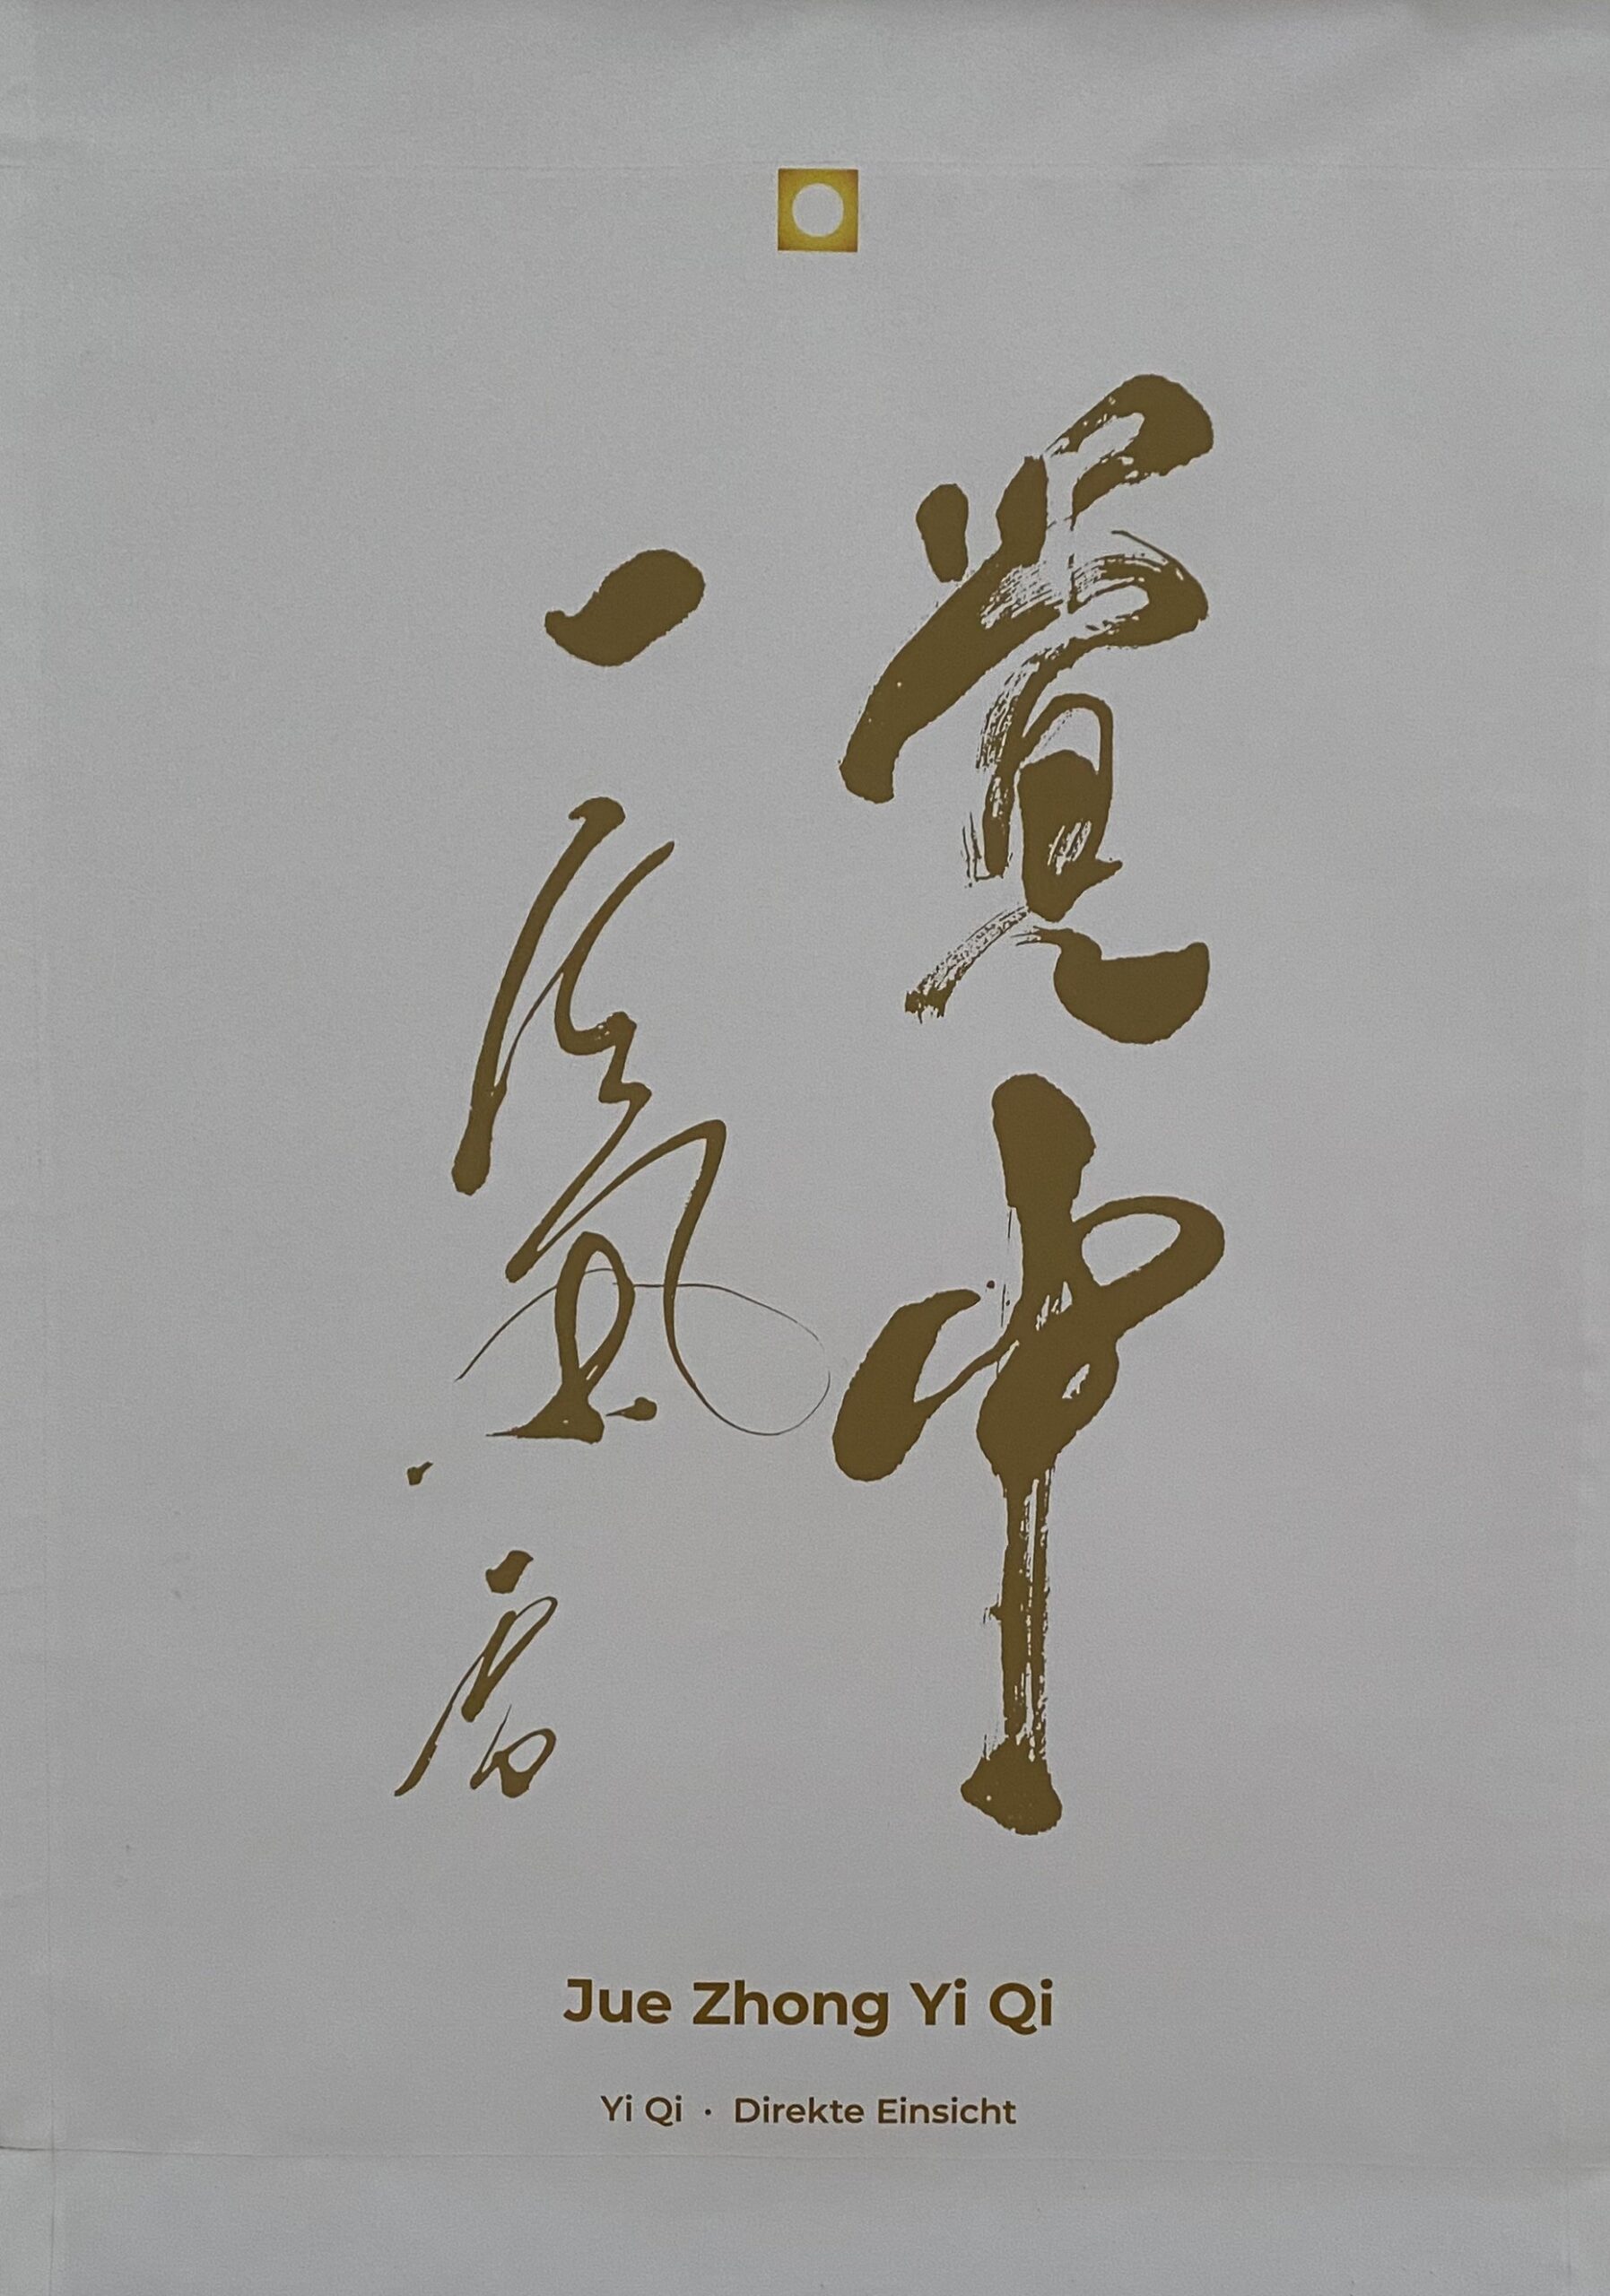 覚中
一氣
Jue Zhong Yi Qi
Yi Qi · Direkte Einsicht